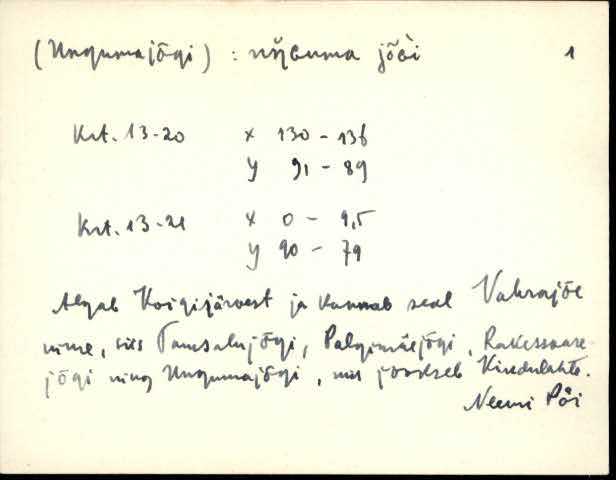 (Ungumajõgi) : uŋ̀ɢuma jõɢi 1
Krt. 13-20 x 130 - 136
y 91 - 89
Krt. 13-21 x 0 - 9,5
y 90 - 79
Algab Koigijärvest ja kannab seal Vahrajõe
nime, siis Tamsalujõgi, Palgimäejõgi, Rakessaare-
jõgi ning Ungumajõgi, mis jookseb
Neemi Põi